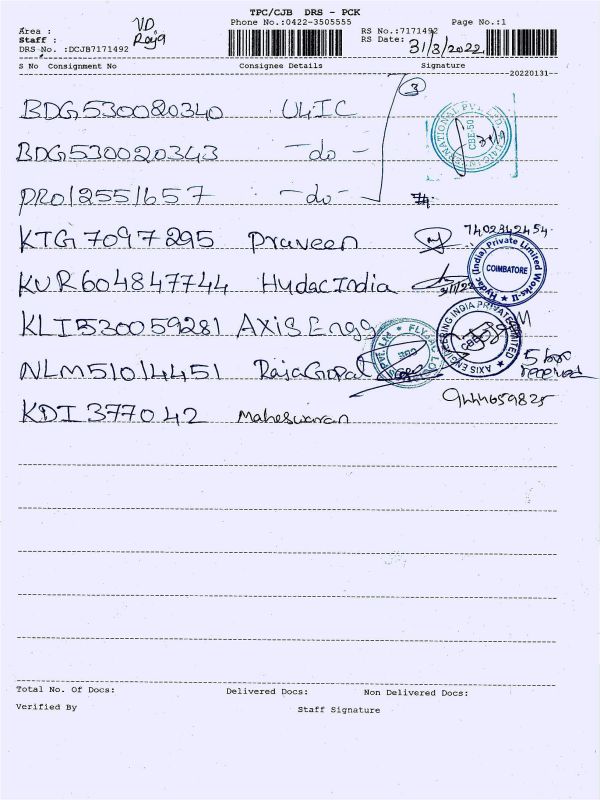 TPC/CJB DRS - PCK
Area : VD Phone No.:0422-3505555 Page No.:1
Staff : Raja RS No.:7171492
DRS No. :DCJB7171492 RS Date: 31/3/2022
S No Consignment No Consignee Details Signature
20220131
BDG530020340 U4IC 3
BDG530020343 -do-
PRO12551657 -do-
KTG7097295 Praveen 7402342454
KUR604847744 Hydac India 3/1/22
KLI530059281 Axis Engg
NLM51014451 RajaGopal 5 received
KDI377042 Maheswaran 9444659825
CBE-50
Hydac (India) Private Limited Works-II
COIMBATORE
AXIS ENGINEERING INDIA PRIVATE LIMITED
Total No. Of Docs: Delivered Docs: Non Delivered Docs:
Verified By Staff Signature